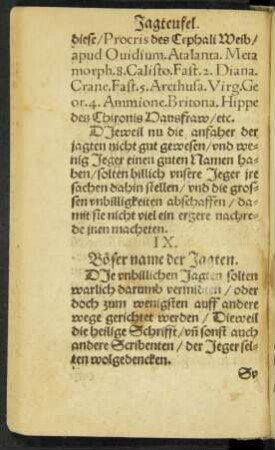 Jagteufel.
diese/ Procris des Cephali Weib/
apud Ouidium. Atalanta. Meta
morph. 8. Calisto. Fast. 2. Diana.
Crane. Fast. 5. Arethusa. Virg. Ge
or. 4. Ammione. Britona. Hippe
des Chironis Hausfraw/ etc.
DJeweil nu die anfaher der
jagten nicht gut gewesen/ vnd we-
nig Jeger einen guten Namen ha
ben/ solten billich vnsere Jeger jre
sachen dahin stellen/ vnd die gros-
sen vnbilligkeiten abschaffen/ da-
mit sie nicht viel ein ergere nachre-
de jnen macheten.
IX.
Böser name der Jagten.
DJe vnbillichen Jagten solten
warlich darumb vermidten/ oder
doch zum wenigsten auff andere
wege gerichtet werden/ Dieweil
die heilige Schrifft/ vñ sonst auch
andere Scribenten/ der Jeger sel-
ten wolgedencken.
Sp